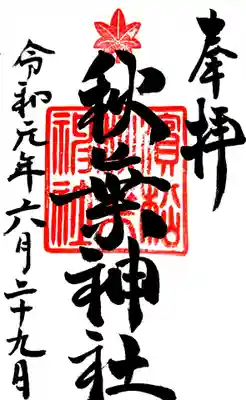 奉拝
秋葉神社
令和元年六月二十九日